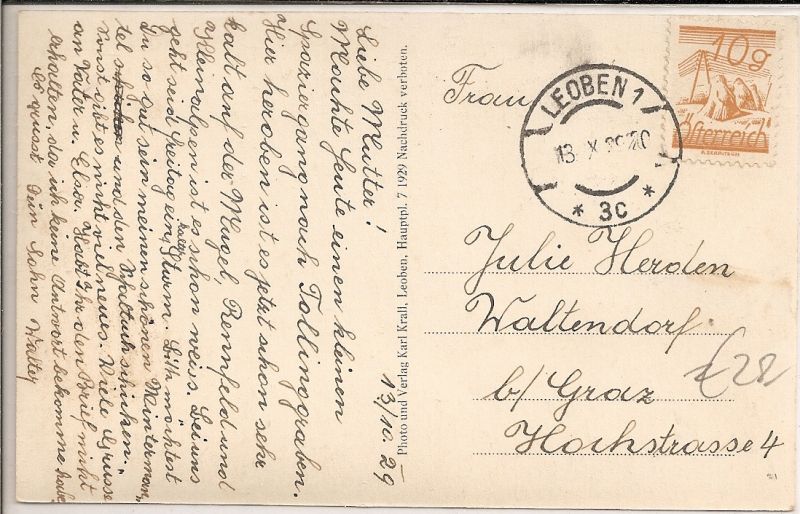 Liebe Mutter!
Machte heute einen kleinen
Spaziergang nach Tollinggraben.
Hier heroben ist es jetzt schon sehr
kalt auf der Mugel, Rennfeld und
Kleinalpen ist es schon weis. Bei uns
geht seid Freitag ein kalter Sturm. Bitte möchtest
Du so gut sein meinen schönen Winterman„
tel und den schicken.
Sonst gibt es nicht viel neues. Viele Grüsse
an Vater u. Elsa. Habt Ihr den Brief nicht
erhalten, da ich keine Antwort bekomme habe.
Es grüsst Dein Sohn Walter
13/10. 29
Photo und Verlag Karl Krall, Leoben, Hauptpl. 7 1929 Nachdruck verboten.
Frau
Julie Herden
Waltendorf
b/Graz
Hochstrasse 4
£28
LEOBEN 1
13. X 29
* 3c *
10g
Österreich